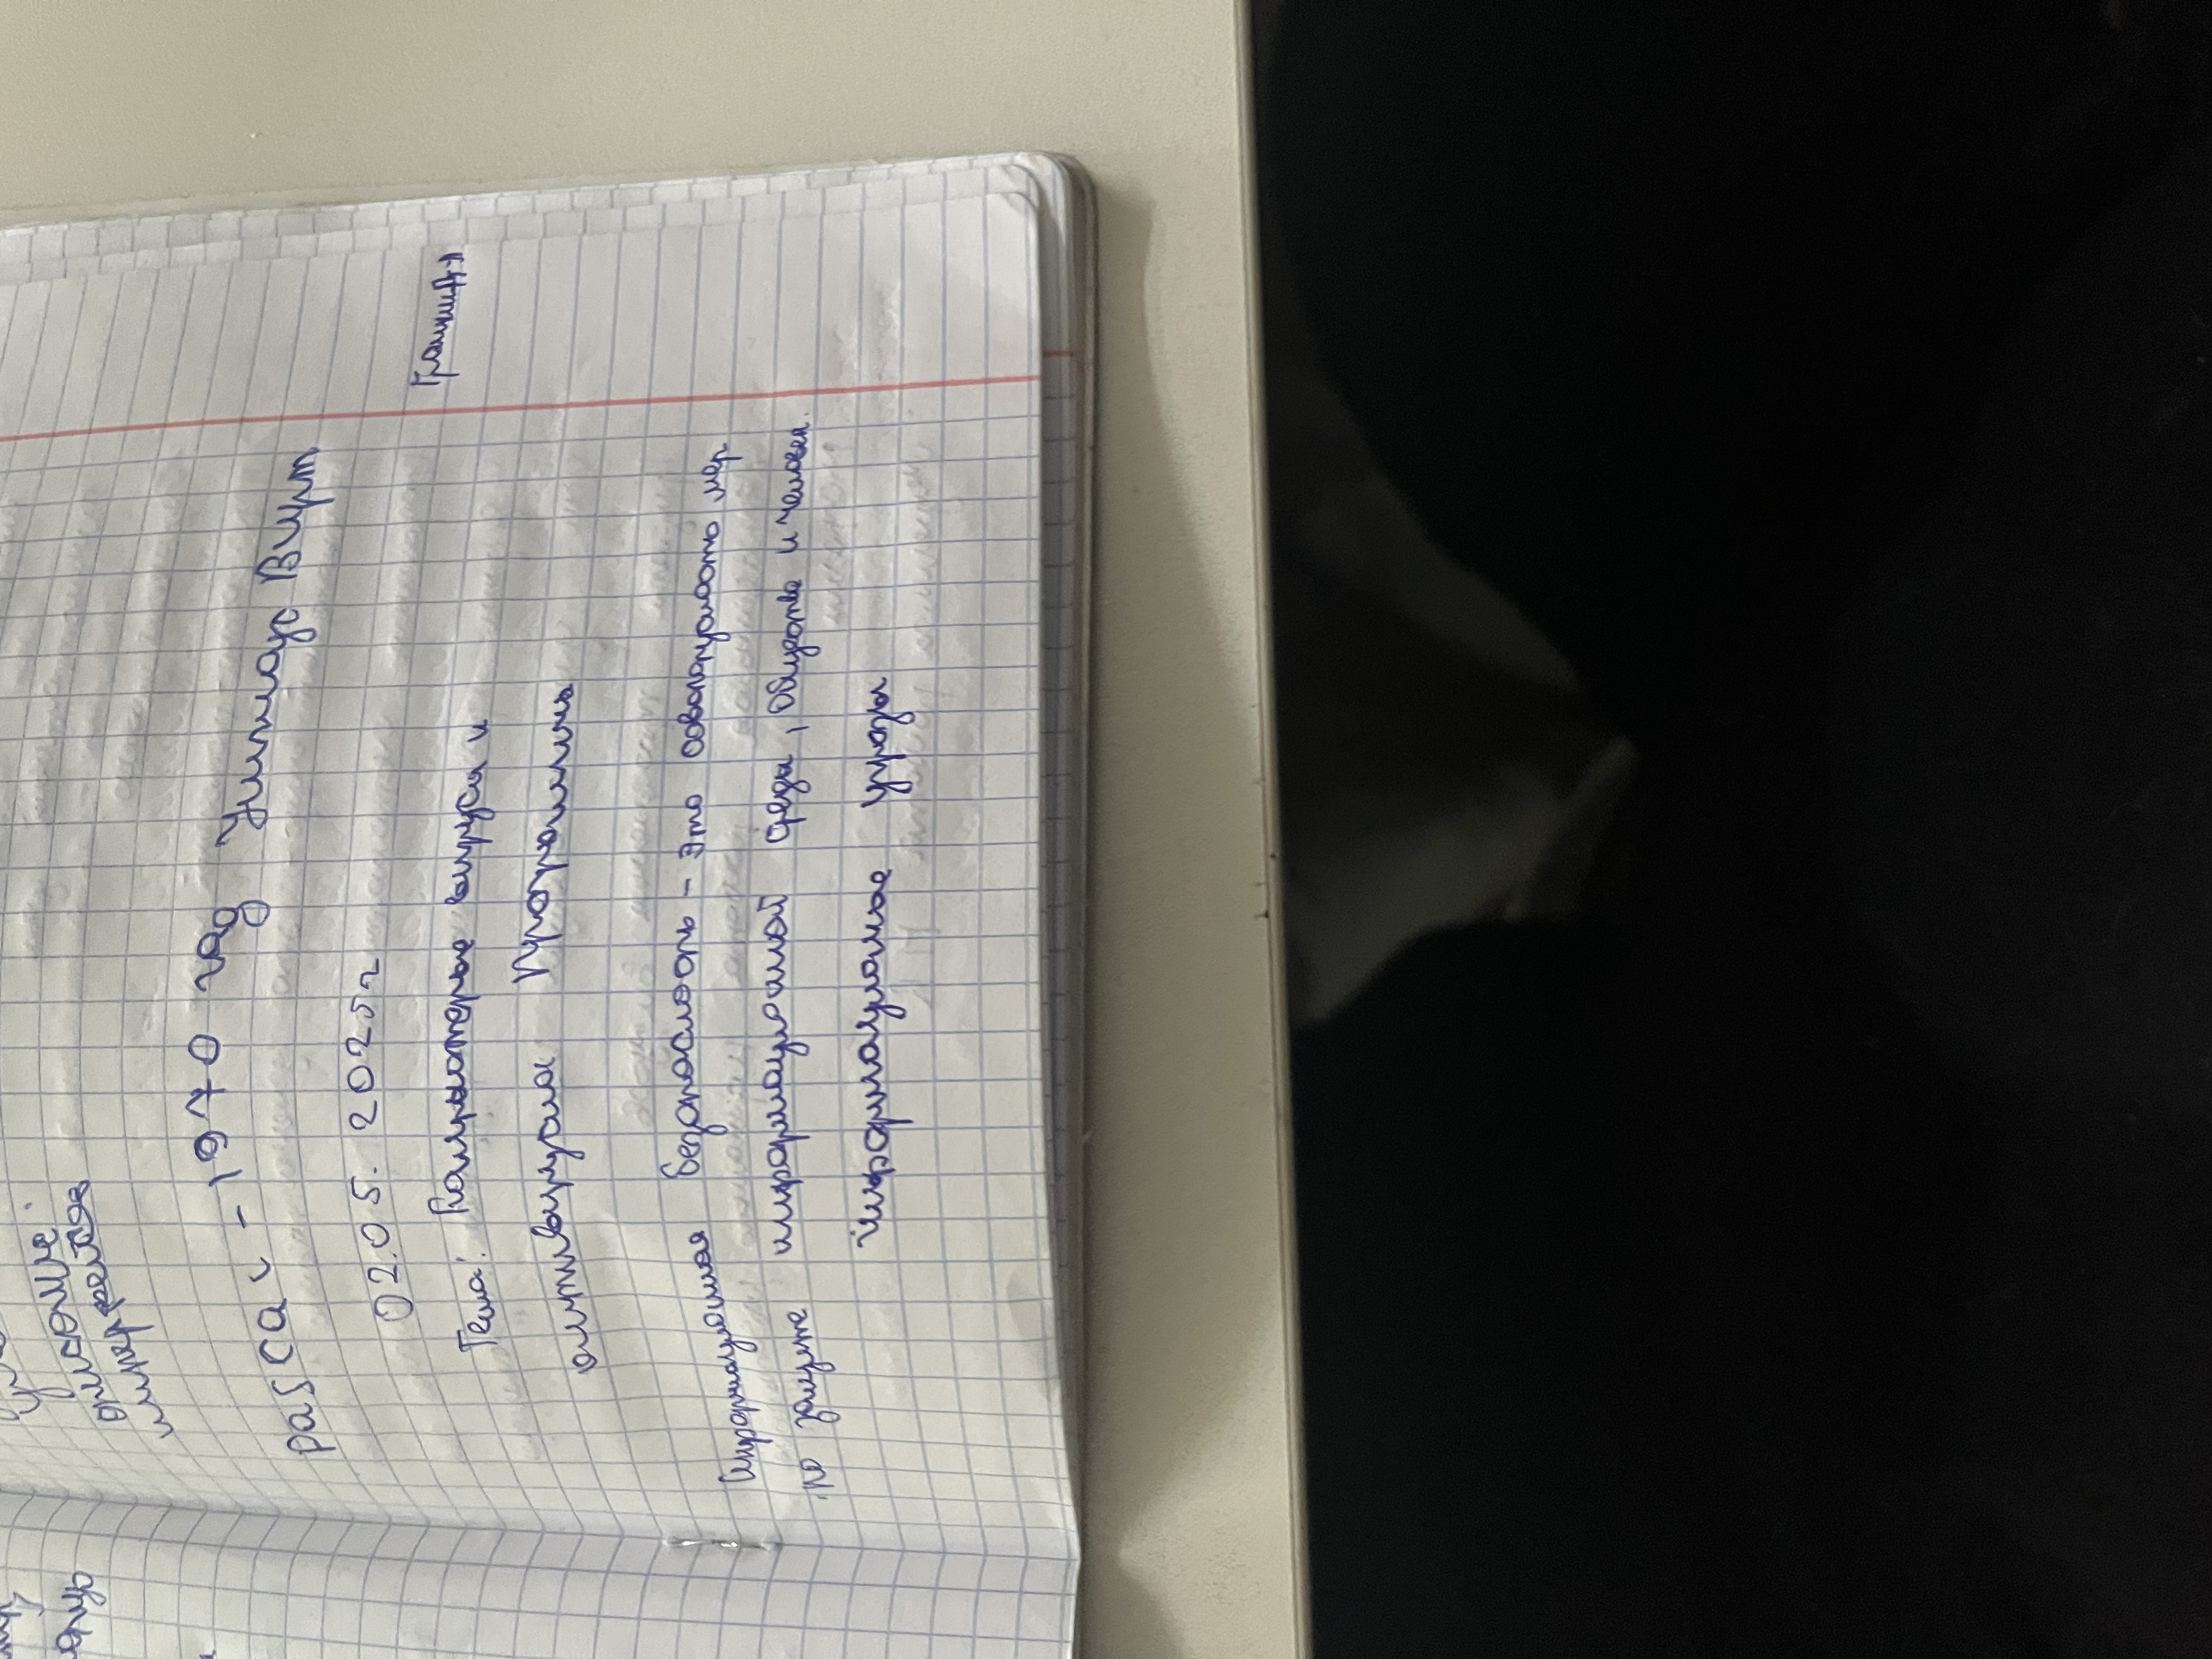 описание
интерпретая
pascal - 1970 год Никлаус Вирт
02.05.2025г
Тема: Компьютерные вирусы и
антивирусная Программы
Информационная безопасность - это совокупность мер
по защите информационной среды, общества и человека.
информационные угрозы